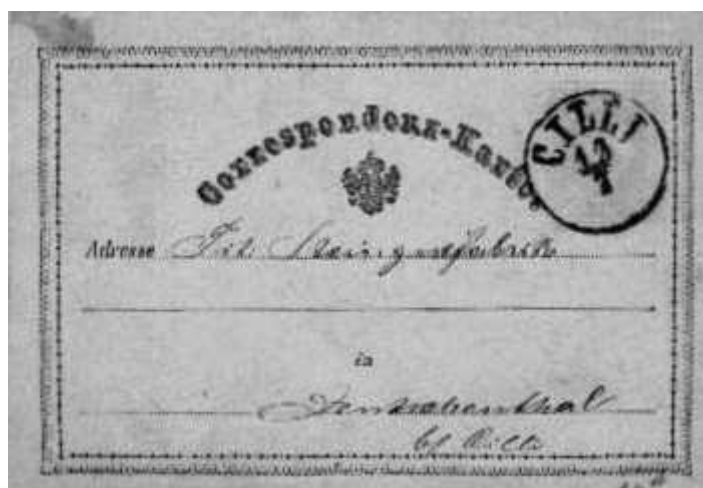 Correspondenz-Karte.
CILLI
Adresse Tit. Steingutfabrik
in
bei Cilli